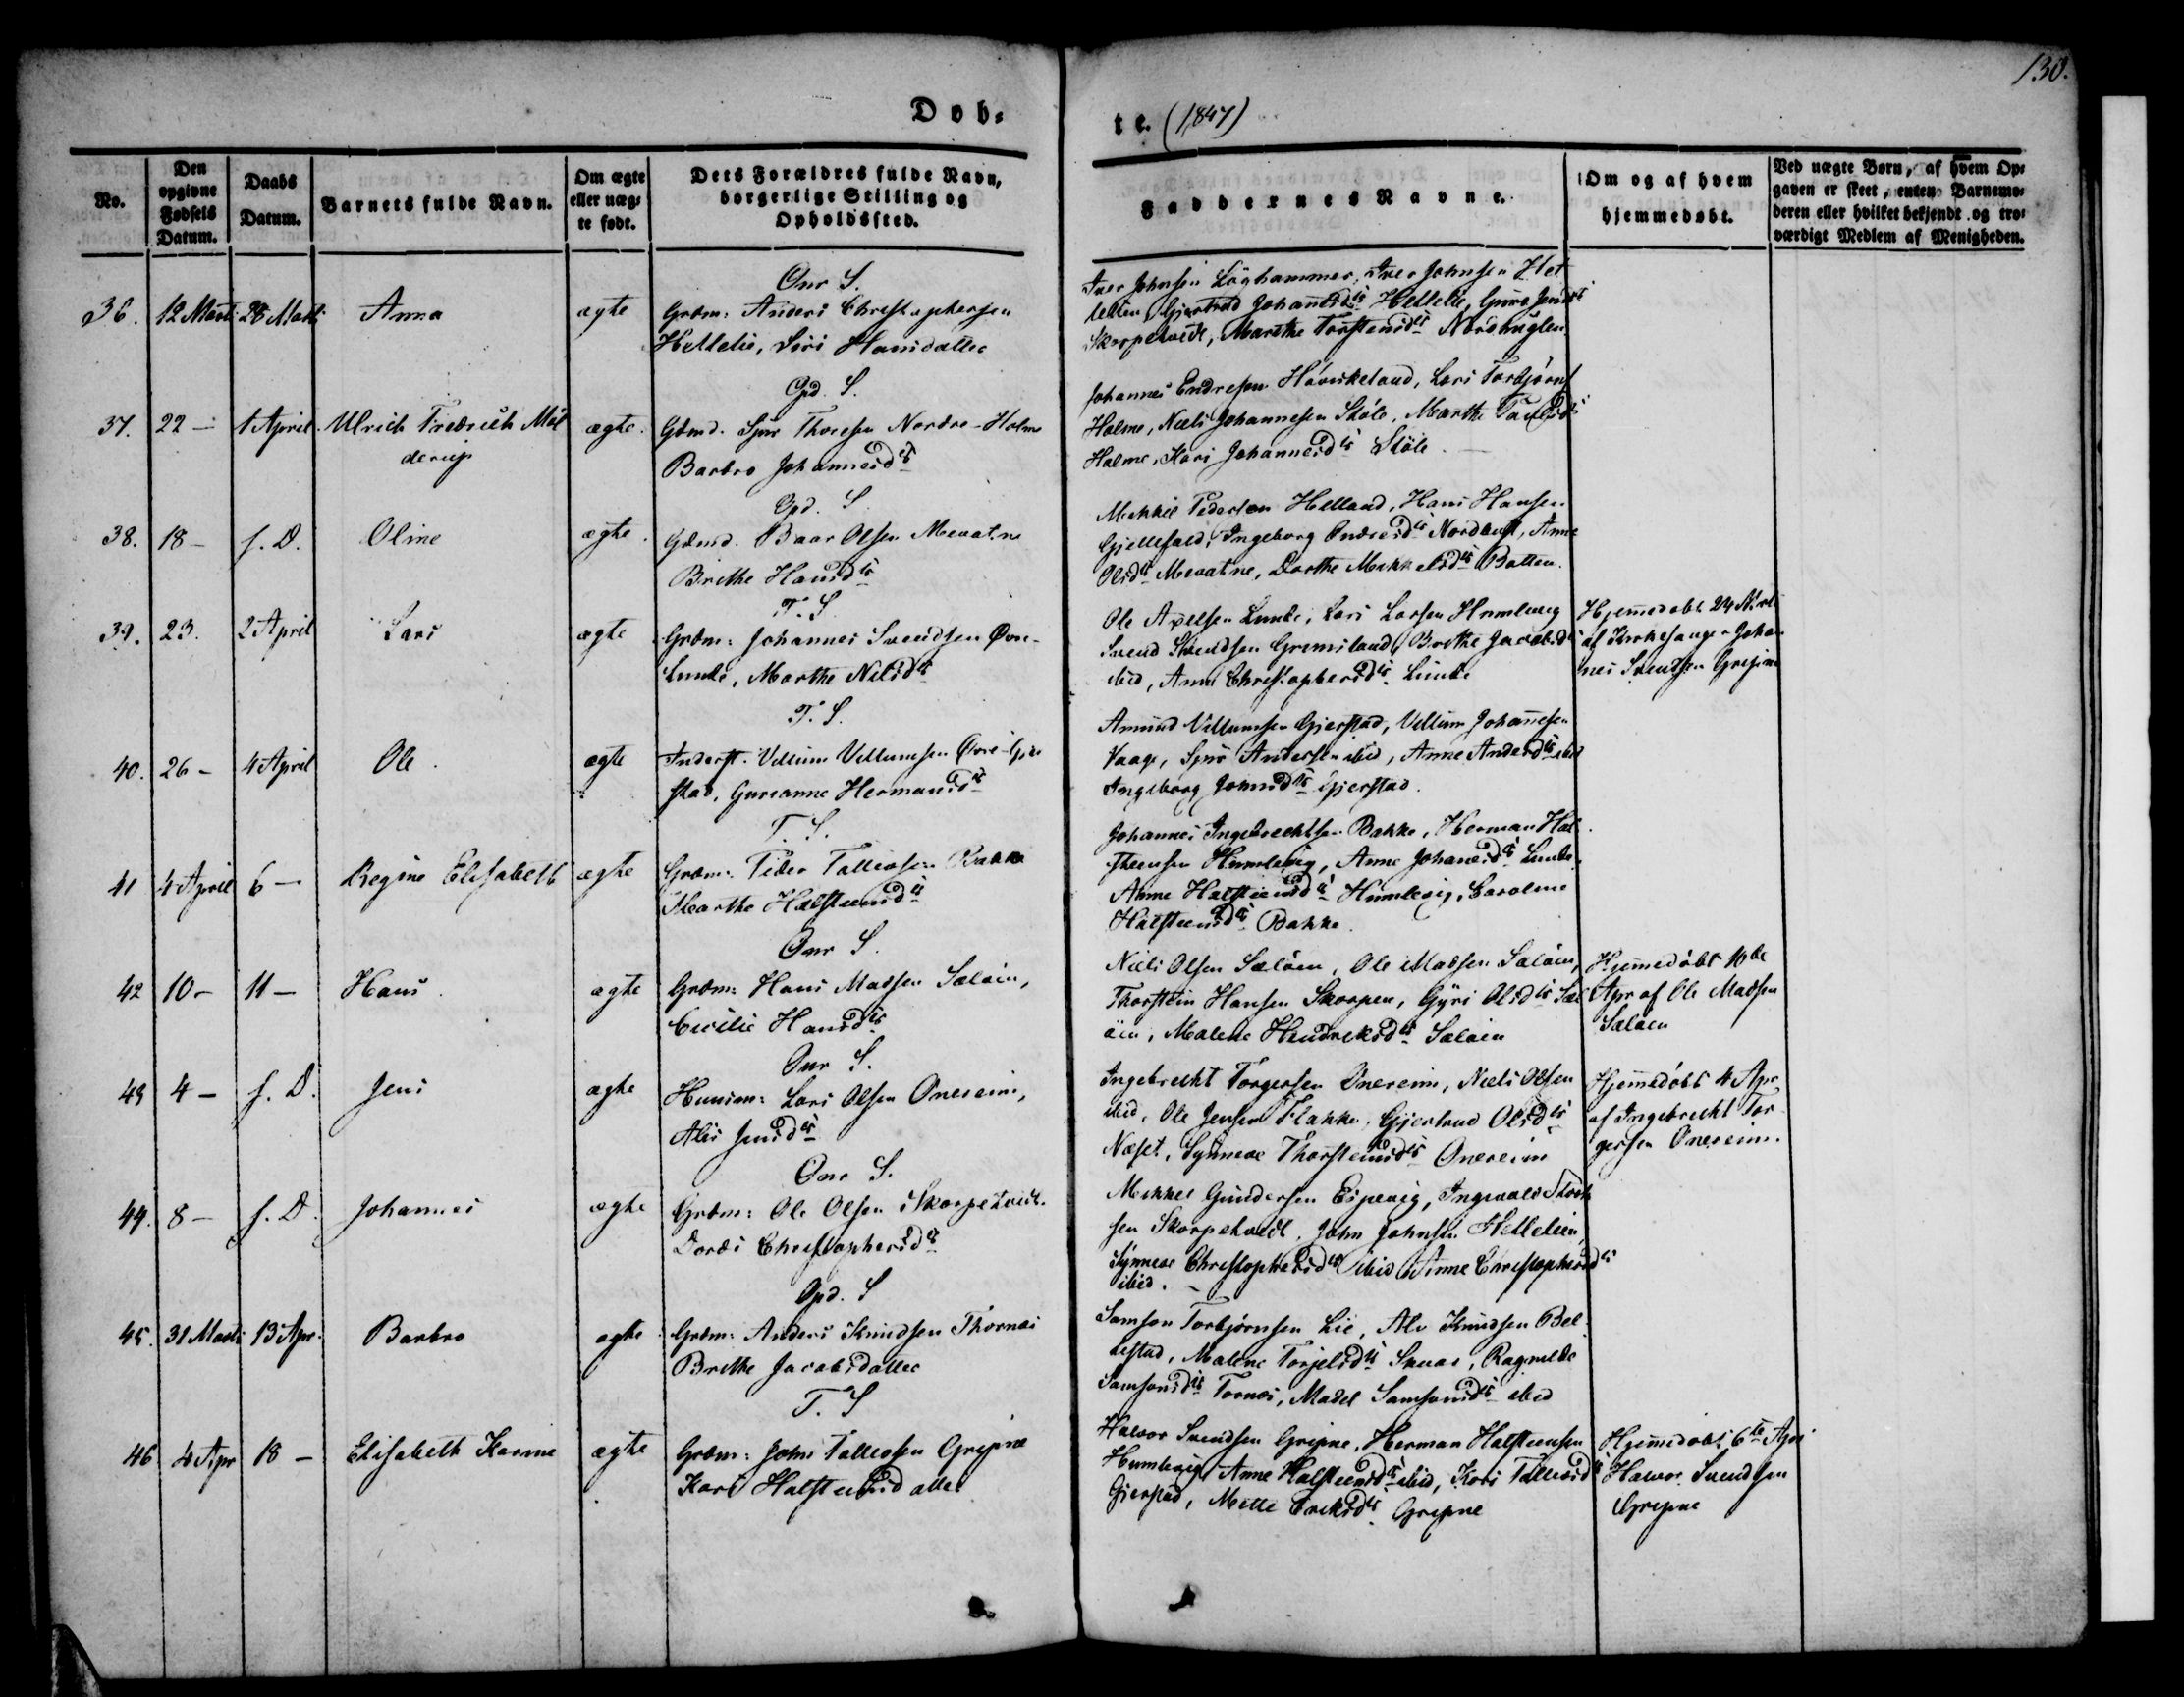 130.
Døb-
te. (1847)
No.
Den opgivne Fødsels Datum.
Daabs Datum.
Barnets fulde Navn.
Om ægte eller uægte født.
Dets Forældres fulde Navn, borgerlige Stilling og Opholdssted.
Faddernes Navne.
Om og af hvem hjemmedøbt.
Ved uægte Børn, af hvem Opgaven er skeet, enten Barnemoderen eller hvilket bekjendt og troværdigt Medlem af Menigheden.
Onr S.
36. 12 Marti 28 Marti Anna ægte Grdm: Anders Christophersen
Hellelie, Siri Hansdatter
Iver Johnsen Løghammer, Iver Johnsen Hel
lelien, Gjertrud Johannesd. Hellelie, Guro Jensd.
Skorpetvedt, Marthe Torstensd. Nordhuglen
Opd. S.
37. 22 — 1 April Ulrich Fredrich Møl
derup
ægte. Gdmd. Sjur Thoresen Nordre-Holme
Barbro Johannesd.
Johannes Endresen Høviskeland, Lars Torbjørns
Holme, Niels Johannesen Støle, Marthe Paulsd.
Holme, Kari Johannesd. Støle
Opd. S
38. 18 — s. D. Oline ægte. Gdmd. Baar Olsen Mevatne
Brithe Hansd.
Mikkel Pedersen Helland, Hans Hansen
Gjellefald, Ingeborg Andersd. Nordhus, Anne
Olsd. Mevatne, Dorthe Mikkelsd. Batten.
T. S
39. 23. 2 April Lars ægte Grdm: Johannes Svendsen Øvre-
Lunde, Marthe Nilsd.
Ole Axelsen Lunde, Lars Larsen Humlevig
Svend Svendsen Grimsland, Brithe Jacobsd.
ibid, Anna Christophersd. Lunde
Hjemmedøbt 24 Marti
af Kirkesanger Johan
nes Svendsen Gripne
T. S.
40. 26 — 4 April Ole. ægte Inderst. Villum Villumsen Øvre-Gjer
stad, Gurianne Hermansd.
Amund Villumsen Gjerstad, Villum Johannesen
Vaage, Sjur Andersen ibid, Anne Andersd. ibid
Ingeborg Johnsd. Gjerstad.
T. S.
41 4 April 6 — Regine Elisabeth ægte Grdm: Peder Tollevsen Bakke
Marthe Halsteensd.
Johannes Ingebrechtsen Bakke, Herman Hal
steensen Humlevig, Anne Johannesd. Lunde
Anne Halsteensd. Humlevig, Caroline
Halsteensd. Bakke.
Onr S.
42 10 — 11 — Hans. ægte Grdm: Hans Madsen Sæløen,
Cecilie Hansd.
Niels Olsen Sæløen, Ole Madsen Sæløen,
Thorstein Hansen Skorpen, Gyri Olsd. Sæl
øen, Malene Hendriksd. Sæløen
Hjemmedøbt 10de
Apr af Ole Madsen
Sæløen
Onr S.
43 4 — s. D. Jens ægte Huusm: Lars Olsen Onereim,
Alis Jensd.
Ingebrecht Torgersen Onereim, Niels Olsen
ibid, Ole Jensen Flakke, Gjertrud Olsd.
Næset, Synneve Thorsteinsd. Onereim
Hjemmedøbt 4 Apr.
af Ingebrecht Tor
gersen Onereim.
Onr S.
44. 8 — s. D. Johannes ægte Grdm: Ole Olsen Skorpetvedt.
Dordi Christophersd.
Mikkel Gundersen Espevig, Ingevald
sen Skorpetvedt, John Johnsen Hellelien
Synneve Christophersd. ibid Anne Christophersd.
ibid.
Opd. S
45. 31 Marti 13 Apr. Barbro ægte Grdm: Anders Knudsen Thornæs
Brithe Jacobsdatter
Samson Torbjørnsen Lie, Alv Knudsen Bel
lestad, Malene Torjelsd. Ragnilde
Samsonsd. Tornæs, Madel Samsonsd. ibid
T. S
46 4 Apr 18 — Elisabeth Karine ægte Grdm: John Tollevsen Gripne
Kari Halsteensdatter
Halvor Svendsen Gripne, Herman Halsteensen
Humlevig, Anne Halsteensd. ibid, Kari Tollevsd.
Gjerstad, Mette Eriksd. Gripne
Hjemmedøbt 6te Apr
Halvor Svendsen
Gripne